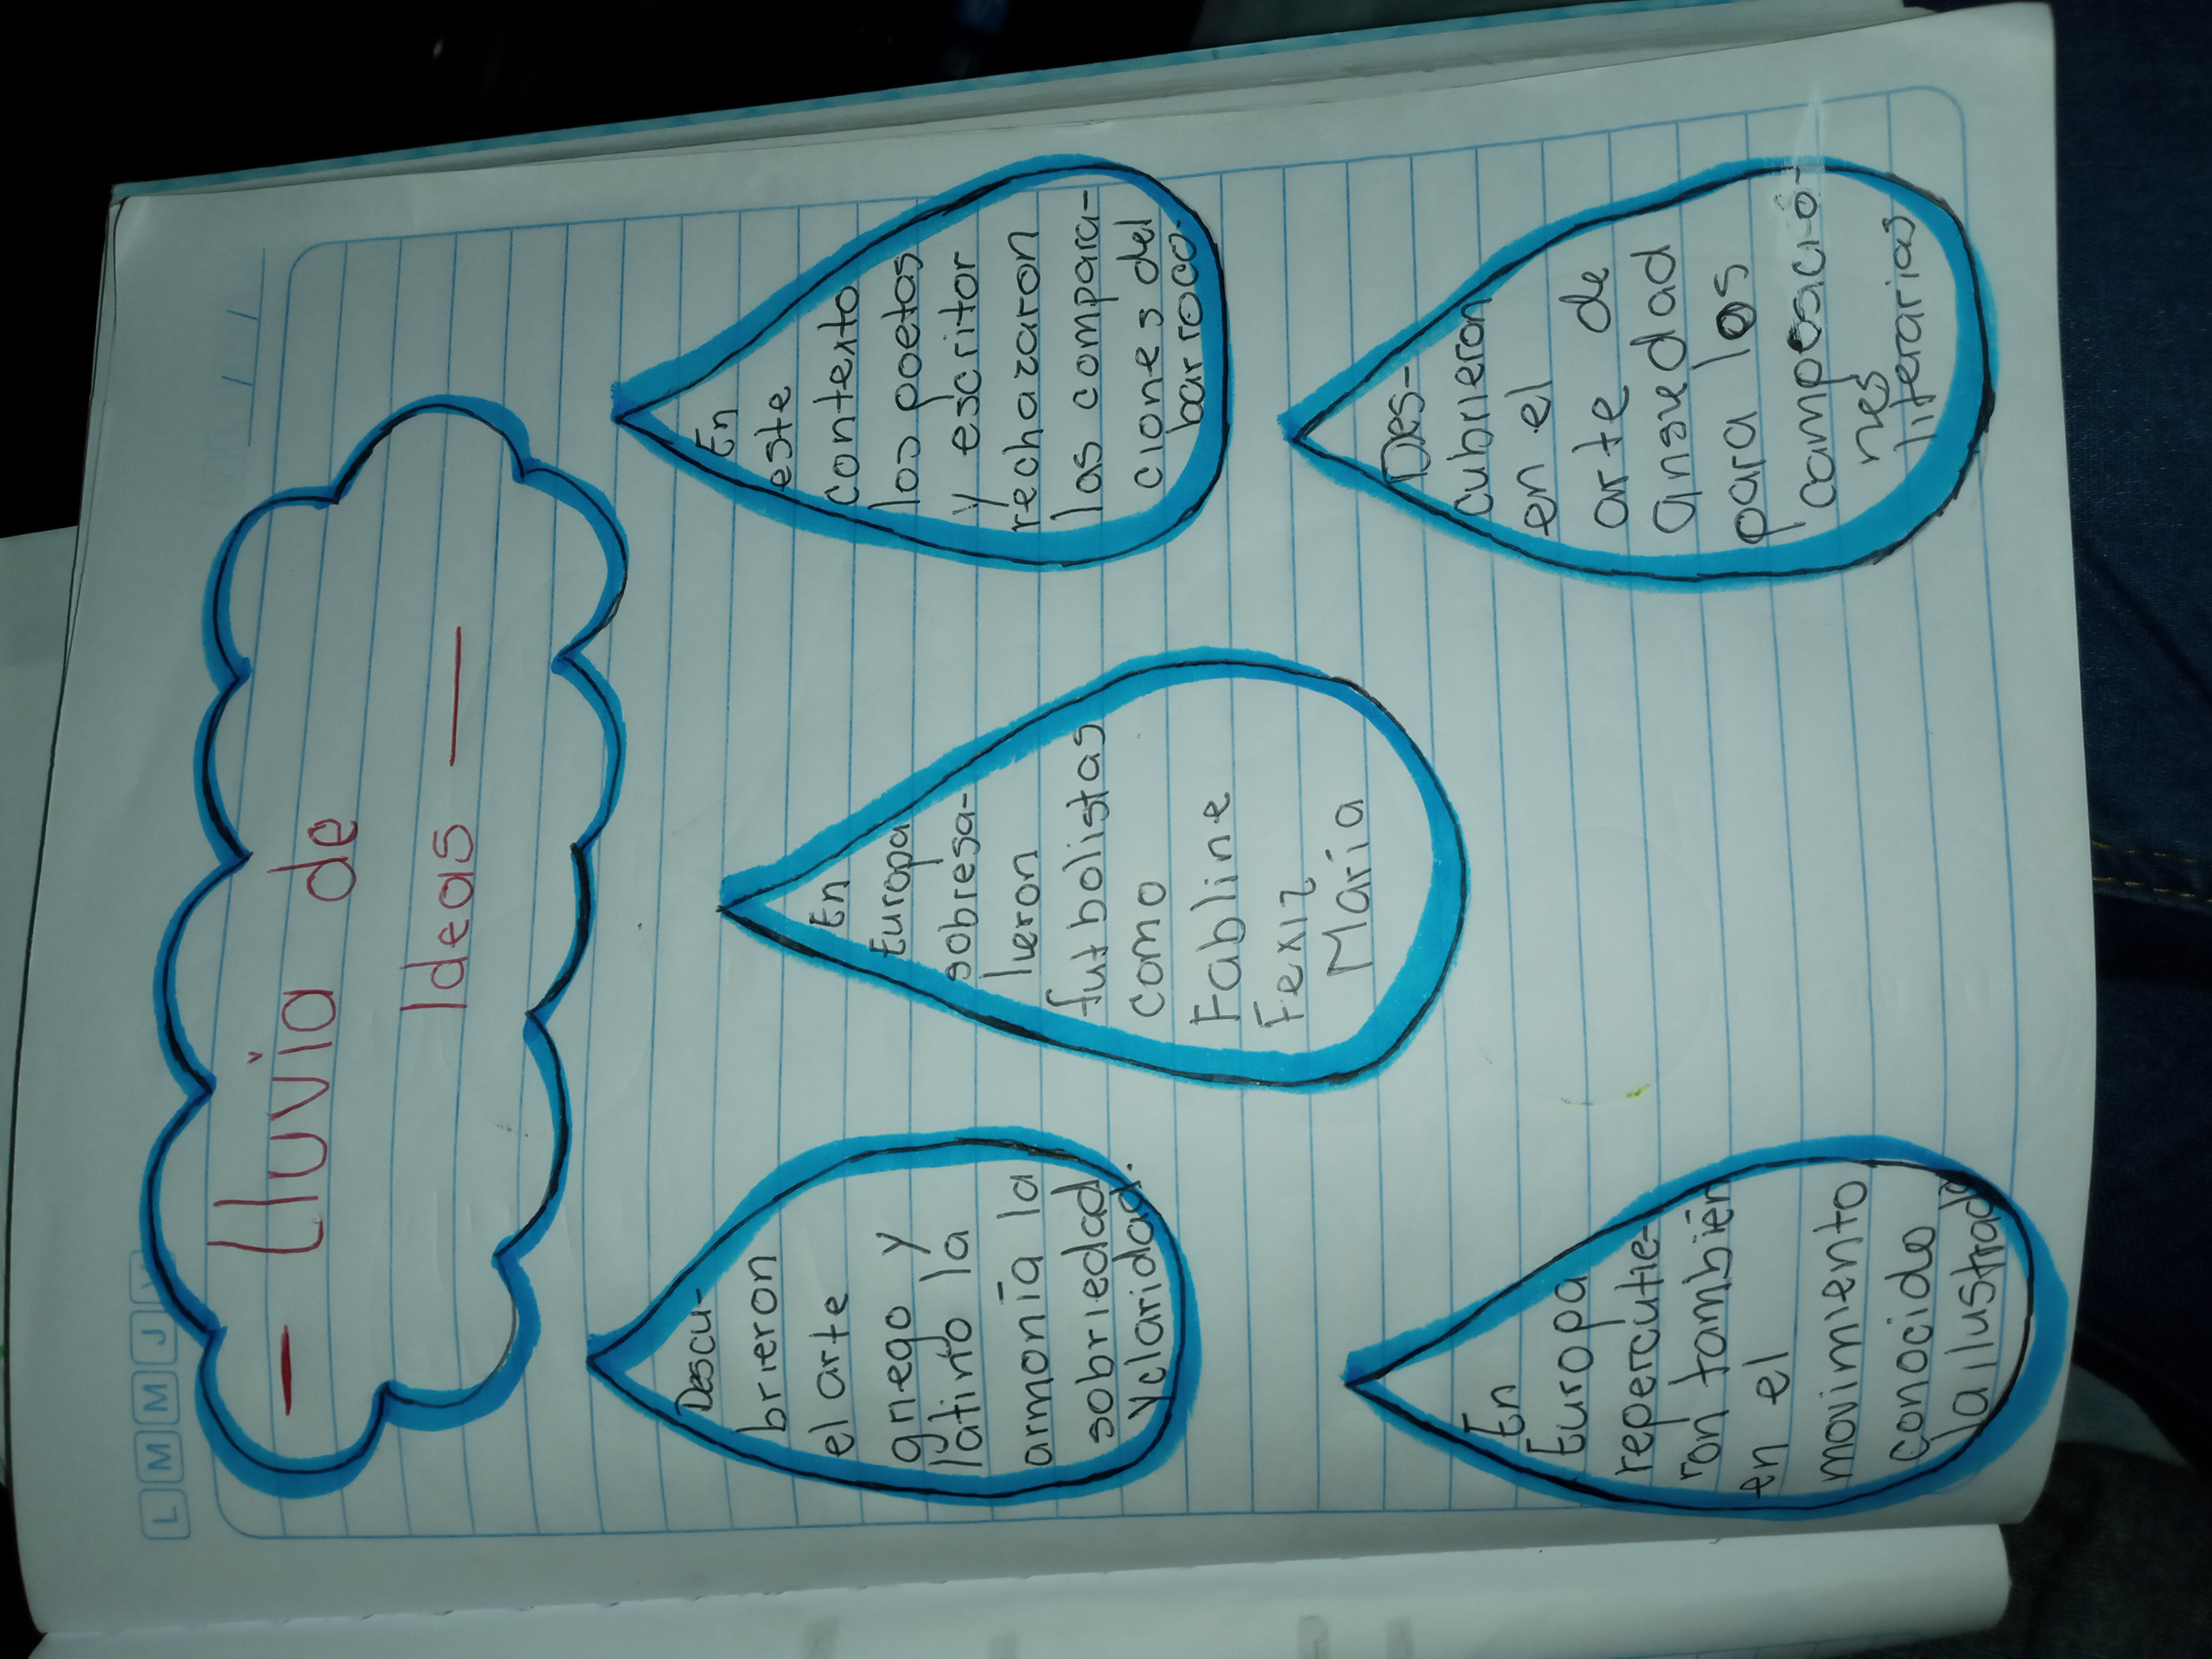 L M M J V
— Lluvia de
Ideas —
Descu-
brieron
el arte
griego y
latino la
armonía la
sobriedad
y claridad.
En
Europa
sobresa-
lieron
futbolistas
como
Fabline
Fexiz
María
En
este
contexto
los poetas
y escritor
rechazaron
las compara-
ciones del
barroco.
En
Europa
repercutie-
ron también
en el
movimiento
conocido
la ilustrada
Des-
cubrieron
en el
arte de
para los
composicio-
nes
literarias